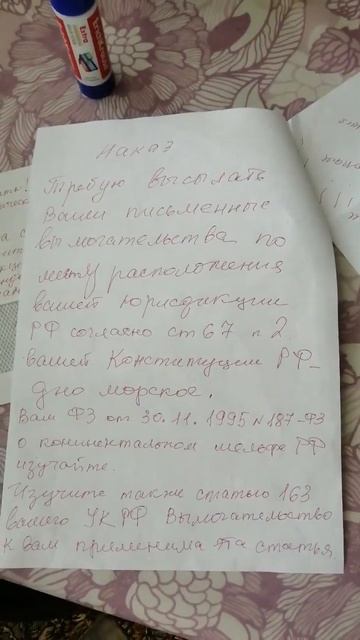 Наказ
Требую высылать
Ваши письменные
вымогательства по
месту расположения
вашей юрисдикции
РФ согласно ст 67 п 2
вашей Конституции РФ-
дно морское.
Вам ФЗ от 30.11.1995 N 187-ФЗ
о континентальном шельфе РФ
изучайте.
Изучите также статью 163
вашего УК РФ Вымогательство
к вам применима эта статья
Extra